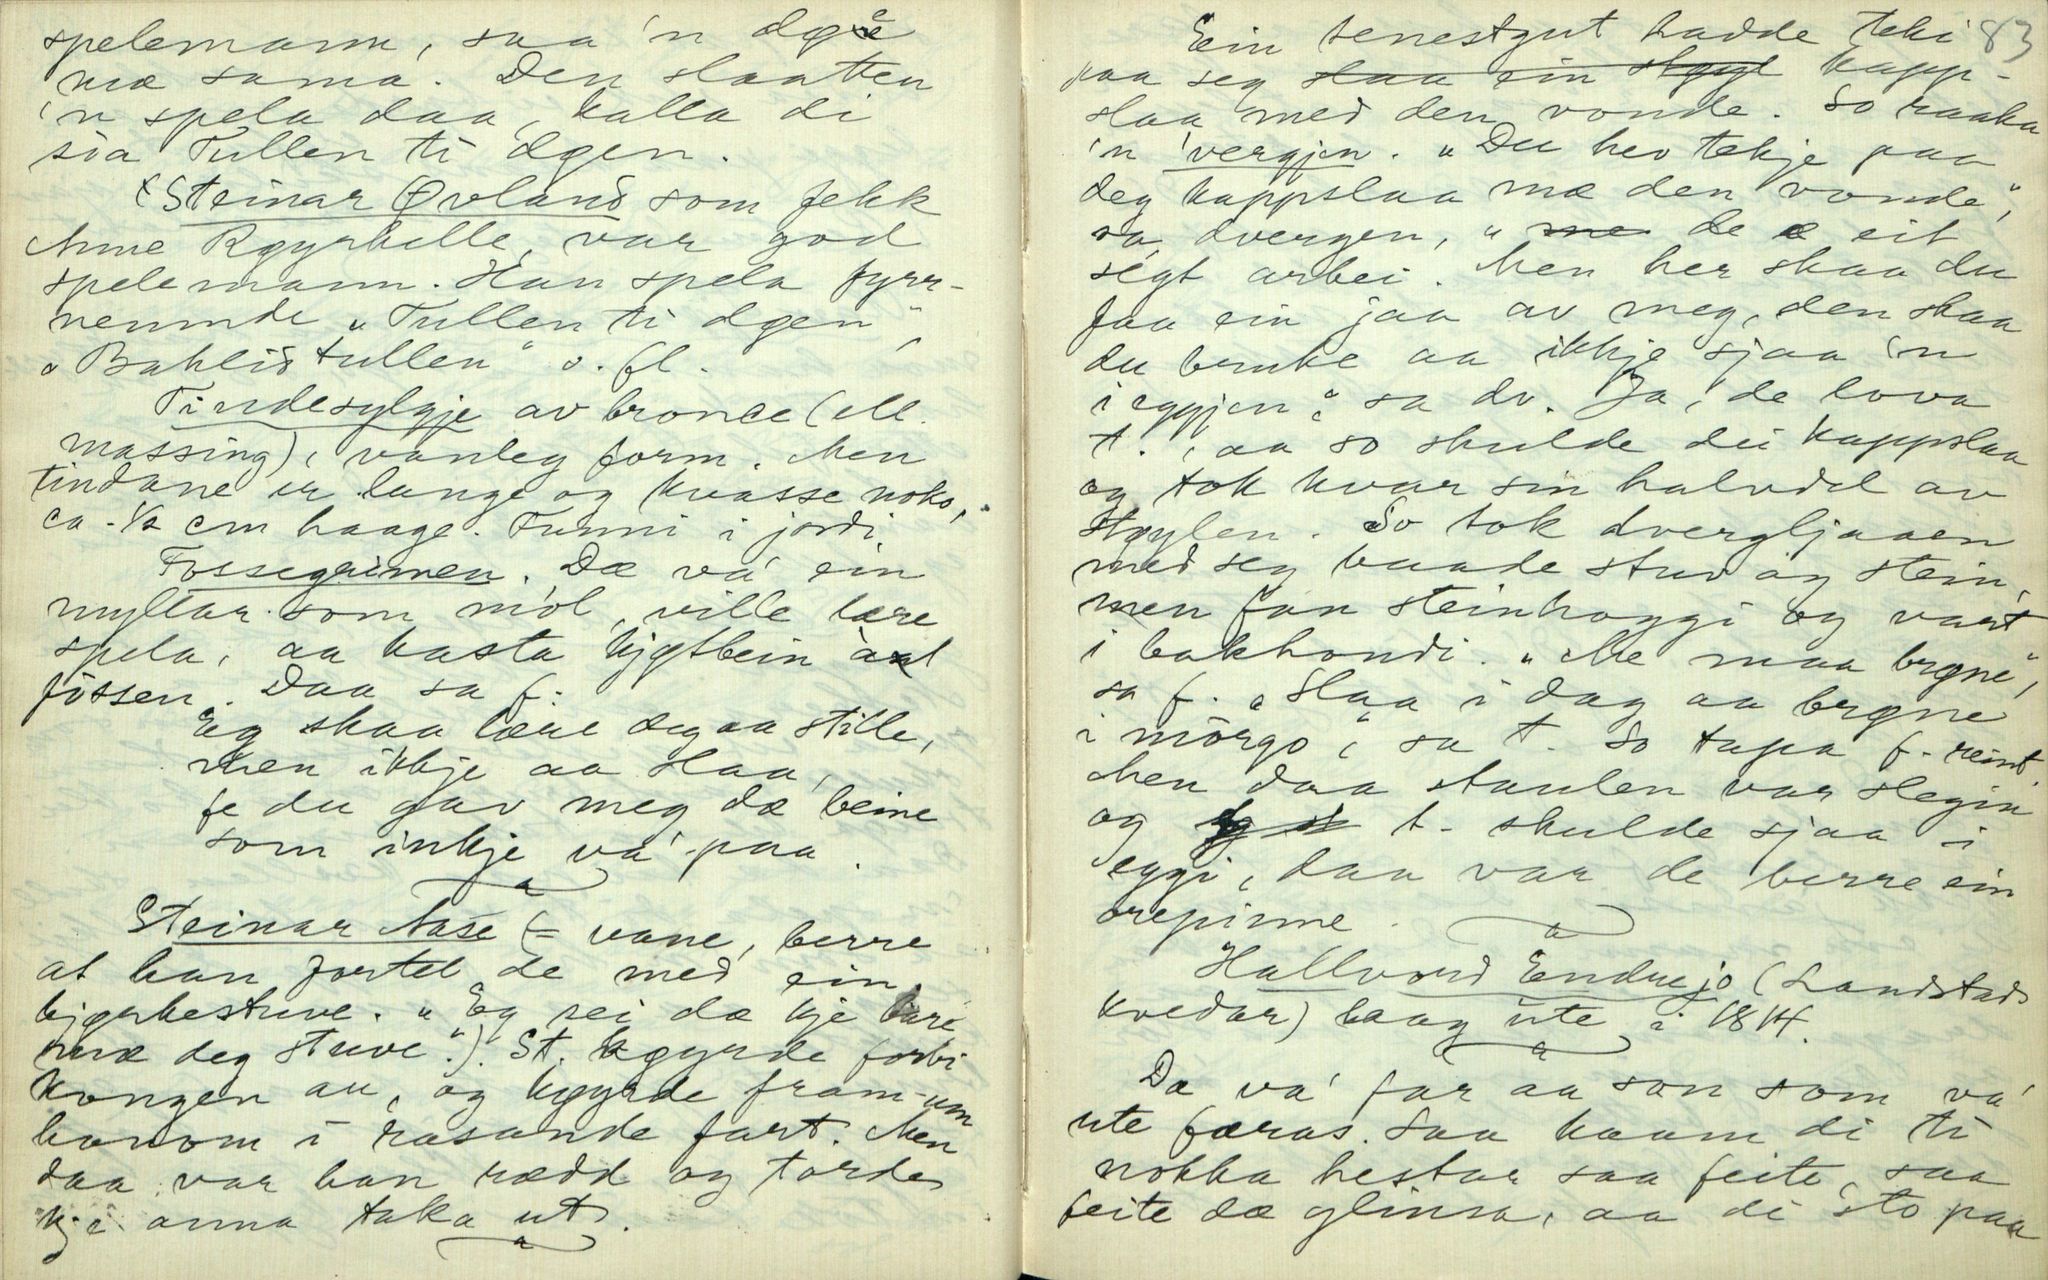 spelemann, saa 'n døe
mæ sama. Den slaatten
'n spela daa, kalla di
sia Tullen ti døen.
(Steinar Øvland som fekk
Anne Røyrhelle, var god
spelemann. Han spela fyrr-
nemnde „Tullen ti døen“,
„Bahlistullen“ o. fl.
Tindesylgje av bronce (ell.
massing), vanleg form. Men
tindane er lange og kvasse noko,
ca. ½ cm haage. Funni i jordi.
Fossegrimen. Dæ va' ein
myllar som mol, ville lære
spela, aa kasta kjøtbein à
fossen. Daa sa f.
Eg skaa lære deg aa stille,
men ikkje aa slaa,
fe du gav meg dæ beine
som inkje va' paa.
Steinar Aase (= vane, berre
at han fortel de med ein
bjørkestuve. „Eg rei dæ kje bare
mæ deg stuve“.). St. køyrde forbi
kongen au, og køyrde fram-um
honom i rasande fart. Men
daa var han rædd og torde
kje anna taka ut.
83
Ein tenestgut hadde teki
paa seg slaa ein støyl kapp-
slaa med den vonde. So raaka
'n vergjen. „Du hev tekje paa
deg kappslaa mæ den vonde“,
sa dvergen, „me de æ eit
segt arbei. Men her skaa du
faa ein jaa av meg, den skaa
du bruke aa ikkje sjaa 'n
i eggjen“, sa dv. Ja, de lova
t., aa so skulde dei kappslaa
og tok kvar sin halvdel av
støylen. So tok dvergljaaen
med seg baade stuv og stein,
men fan steinhoggi og vart
i bakhondi. „Me maa brøne“,
sa f. „Slaa i dag aa brøne
i mórgo“, sa t. So tapa f. reint.
Men daa staulen var slegin
og t. skulde sjaa i
eggi, daa var de berre ein
orepinne.
Hallvord Endrejo (Landstads
kvedar) laag ute i 1814.
Dæ va' far aa son som va'
ute færas. Saa kaam di ti
nokka hestar saa feite, saa
feite dæ glinsa, aa di sto paa